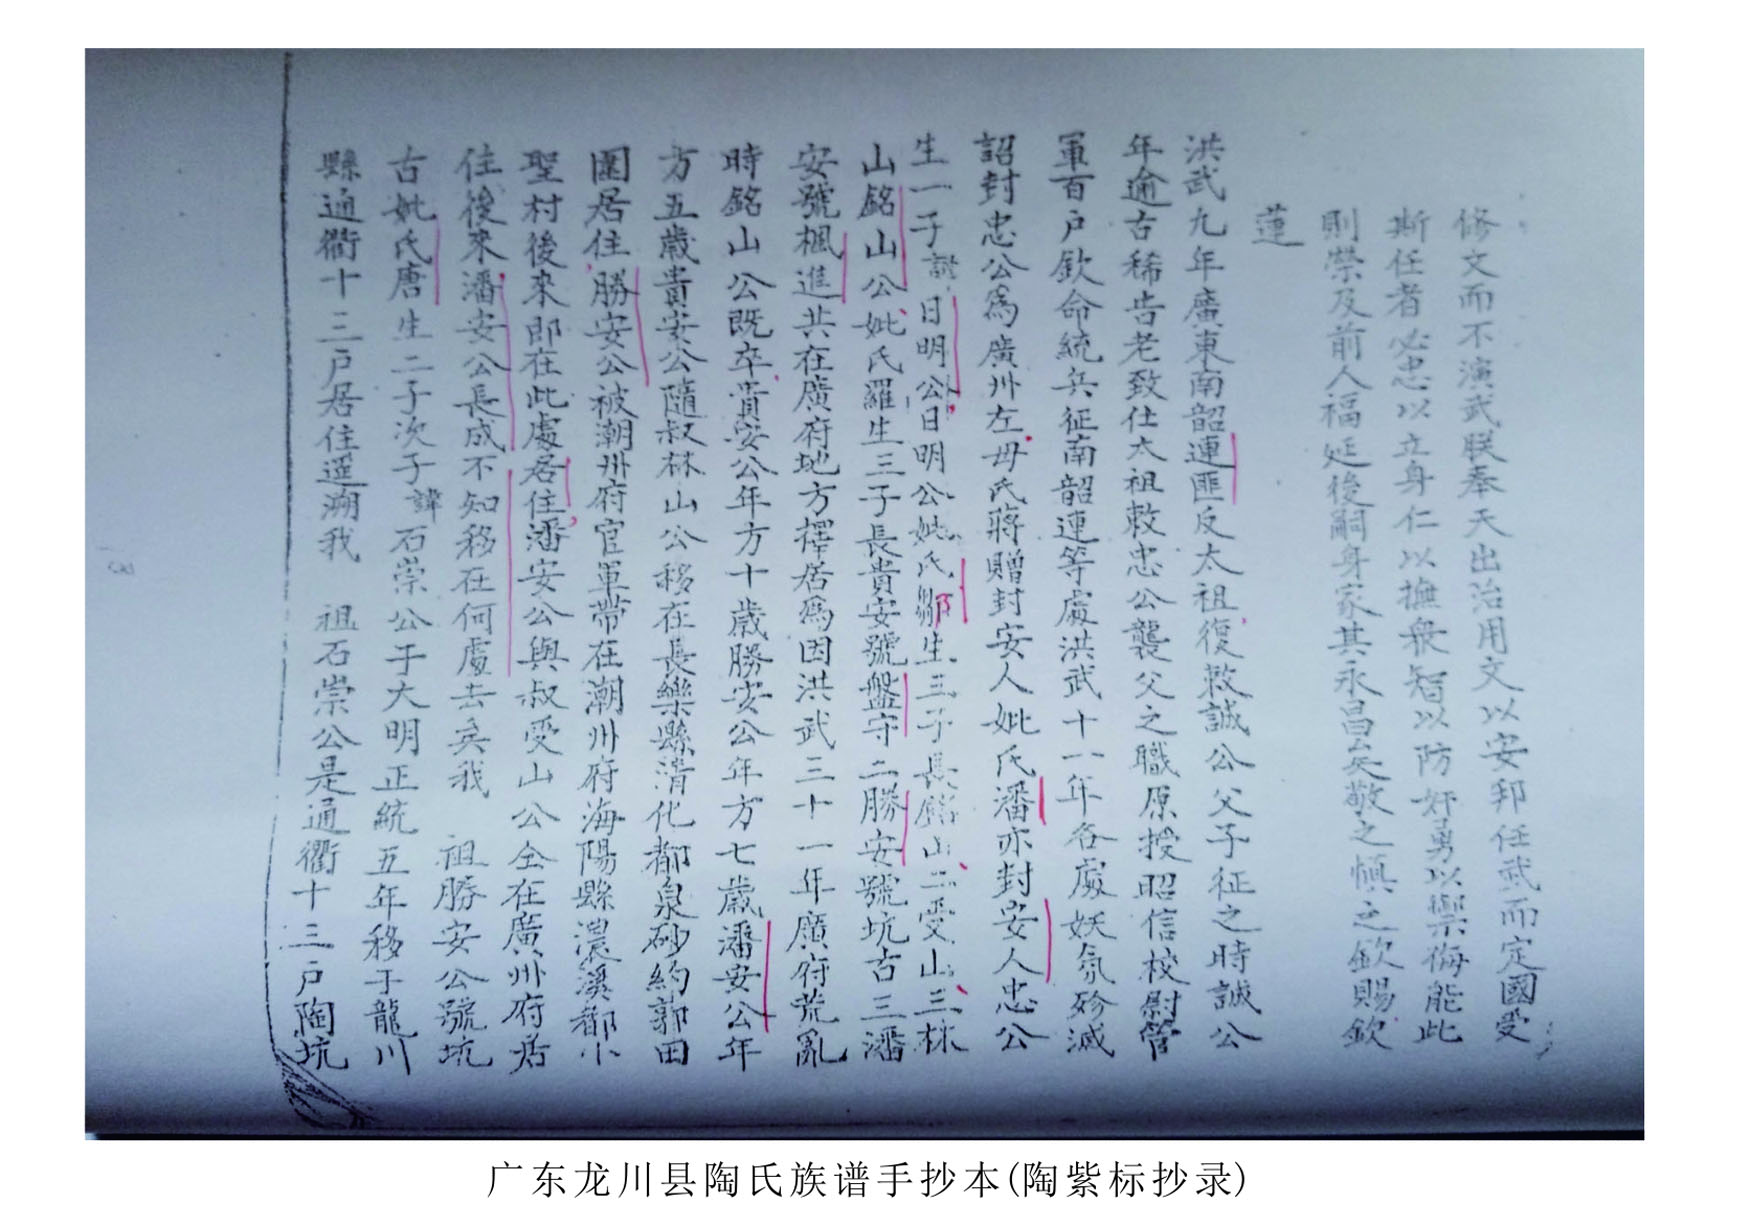 修文而不演武朕奉天出治用文以安邦任武而定國受
斯任者必忠以立身仁以撫衆智以防奸勇以禦侮能此
則榮及前人福延後嗣身家其永昌矣敬之慎之欽賜欽
蓮
洪武九年廣東南韶連匪反太祖復救誠公父子征之時誠公
年逾古稀告老致仕太祖敕忠公襲父之職原授昭信校尉管
軍百户欽命統兵征南韶連等處洪武十一年各處妖氛殄滅
詔封忠公爲廣州左 母氏蔣贈封安人妣氏潘亦封安人忠公
生一子諱日明公日明公妣氏鄒生三子長銘山二受山三林
山銘山公妣氏羅生三子長貴安號盤守二勝安號坑古三潘
安號楓進共在廣府地方擇居爲因洪武三十一年廣府荒亂
時銘山公既卒貴安公年方十歲勝安公年方七歲潘安公年
方五歲貴安公隨叔林山公移在長樂縣清化都泉砂約郭田
圍居住勝安公被潮州府官軍帶在潮州府海陽縣濃溪都小
聖村後來即在此處居住潘安公與叔受山公仝在廣州府居
住後來潘安公長成不知移在何處去矣我 祖勝安公號坑
古妣氏唐生二子次子諱石崇公于大明正統五年移于龍川
縣通衢十三户居住遥溯我 祖石崇公是通衢十三户陶坑
广东龙川县陶氏族谱手抄本(陶紫标抄录)